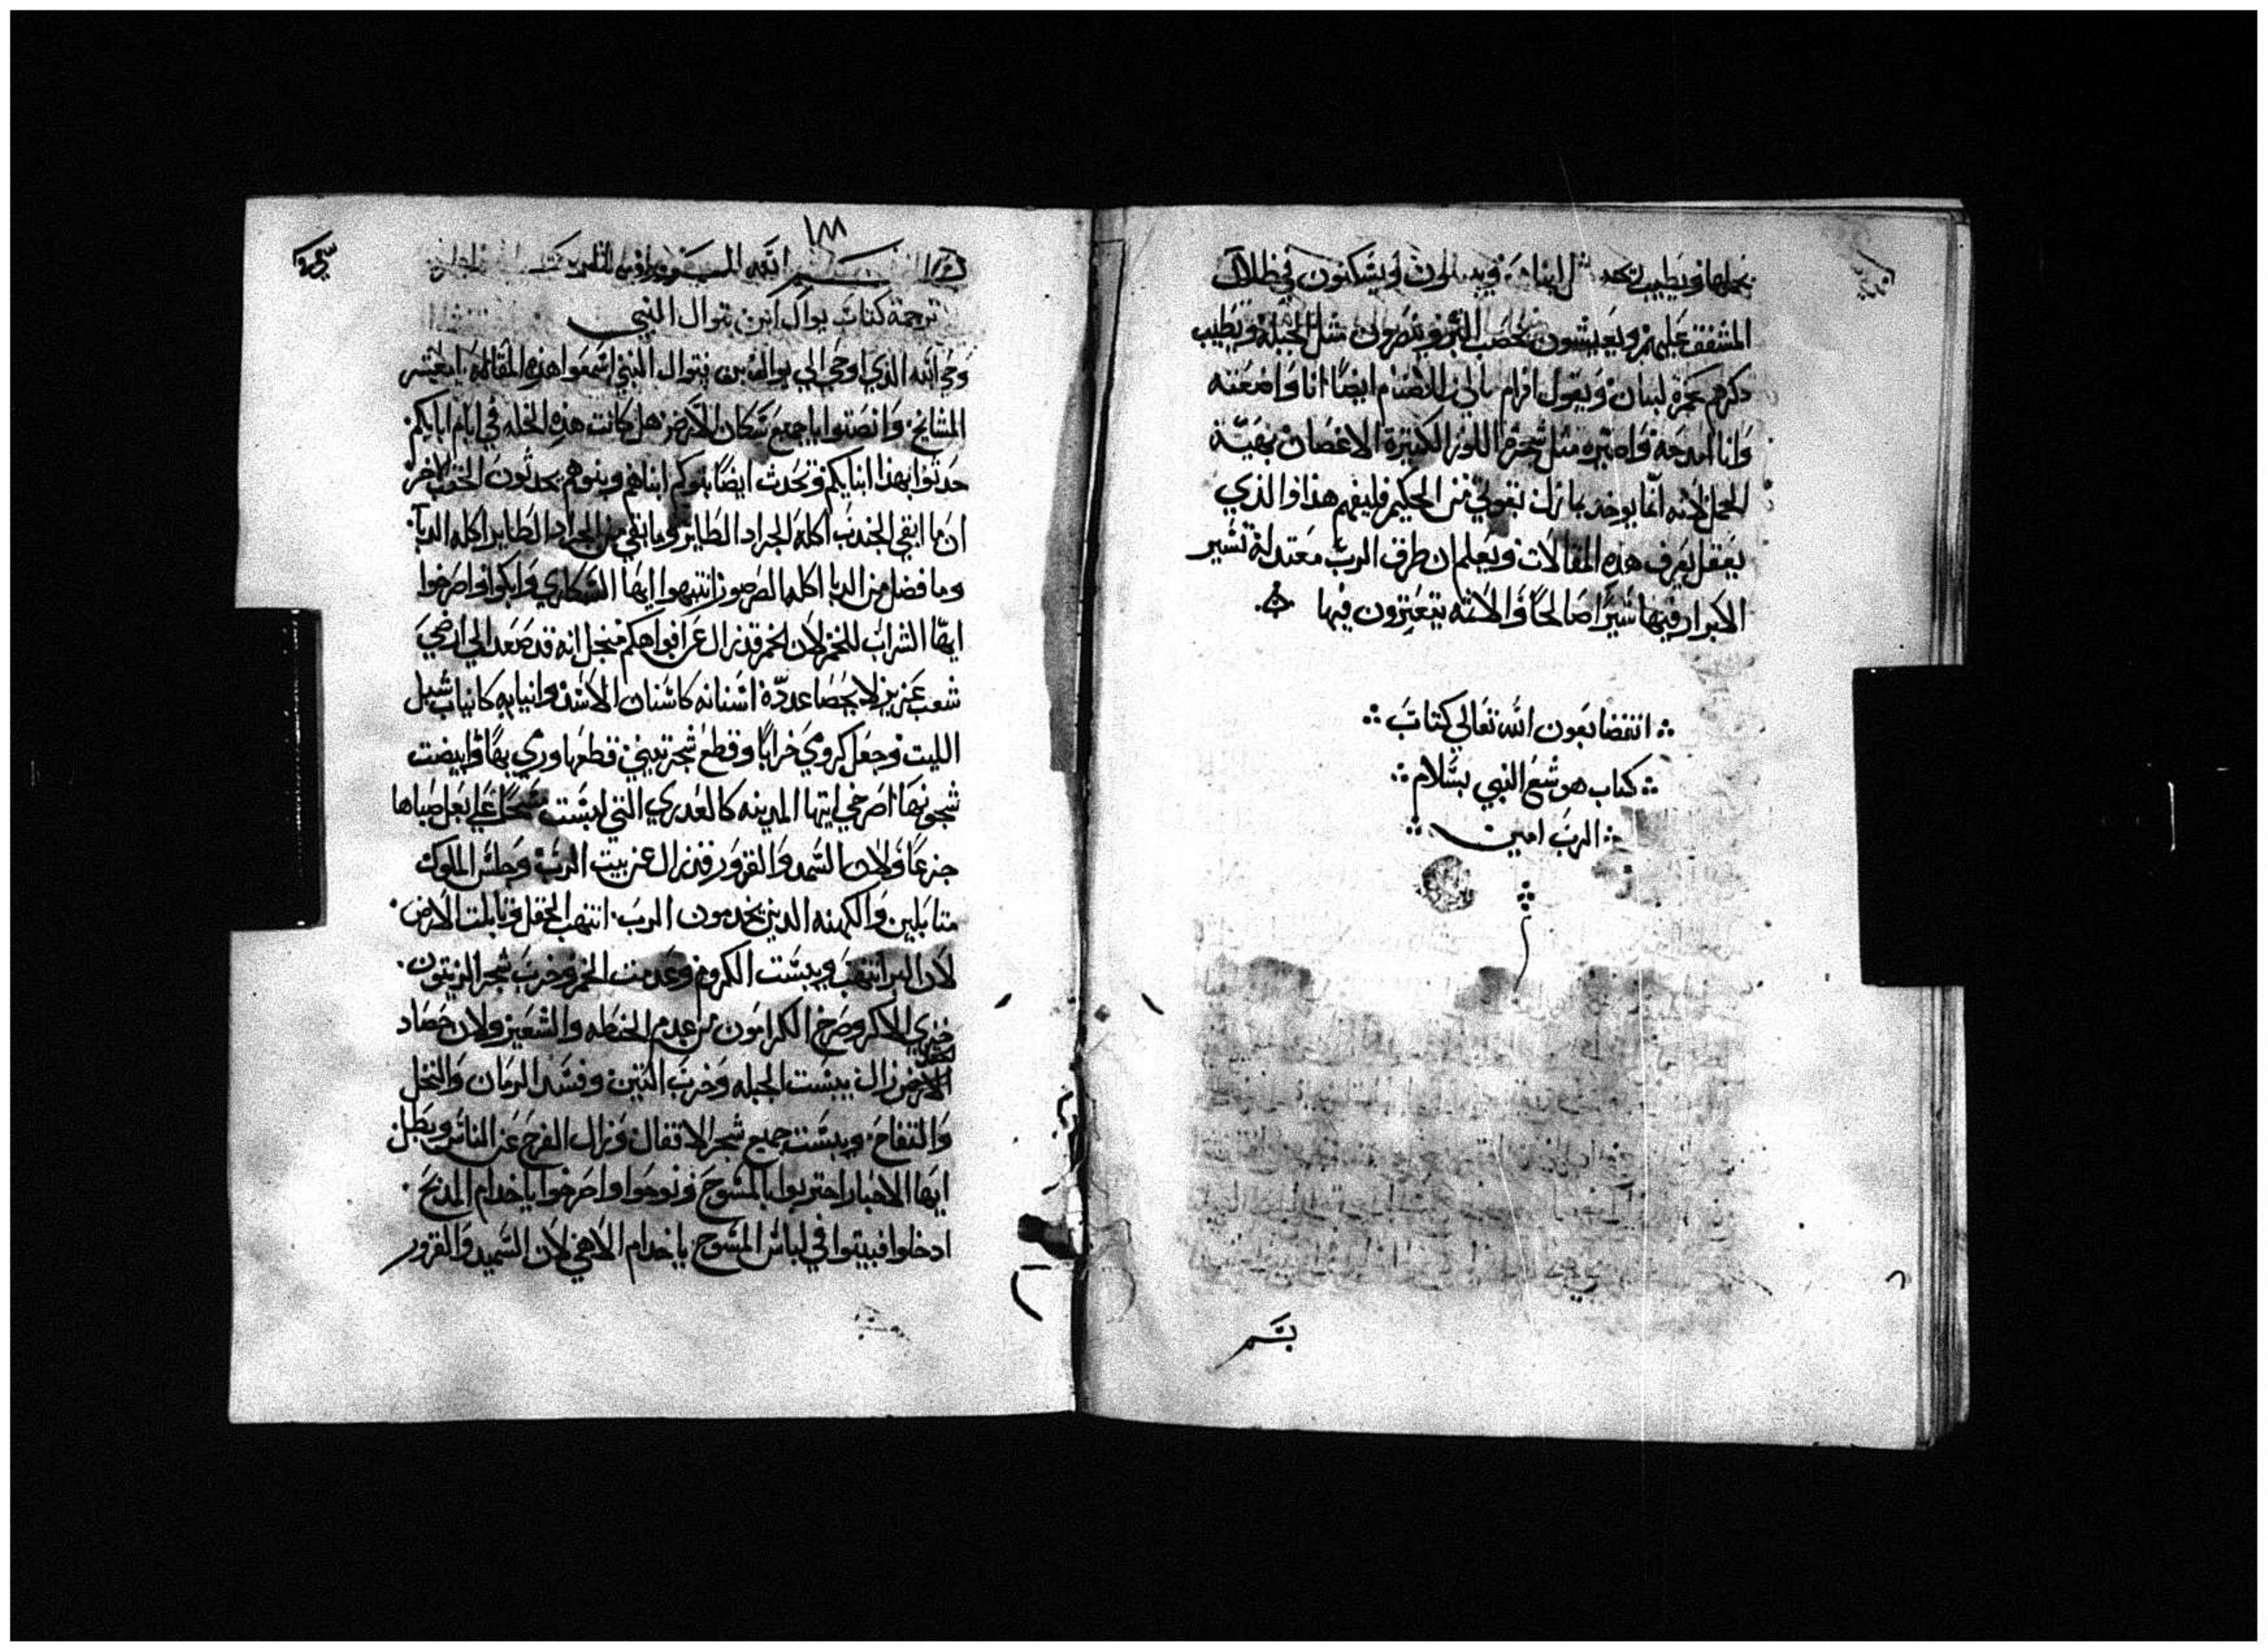 المشفق عليهم ويعيشون بخصب البر ويتصرون مثل الجبله ويطيب
ذكرهم كخمرة لبنان ويقول افرام ما لي للاصنام ايضا انا واضعته
وانا امدحه مثل شجرة اللوز الكثيرة الاغصان بهية
الحمل لانه انما يوخد ثمرتك تقوتي من الحكيم فليفهم هذا والذي
يعقل يعرف هذه المقالات ويعلم ان طرق الرب معتدلة تسير
الابرار فيها سيرا صالحا والاثمه يتعترون فيها
انقضا بعون الله تعالي كتاب
كتاب هوشع النبي بسلام
الرب امين
بسم
١٨٨
بسم الله
ترجمة كتاب يوال ابن بتوال النبي
وحي الله الذي اوحي الي يوال بن بتوال النبي اسمعوا هذه المقالة ايا معشر
المشايخ وانصتوا يا جميع سكان الارض هل كانت هذه الخله في ايام ابايكم
حدثوا بهذا ابنايكم وتحدث ايضا بنوكم ابناهم وبنوهم يحدثون الحقب الاخر
ان ما ابقي الجندب اكله الجراد الطاير وما ابقي من الجراد الطاير اكله الدبا
وما فضل من الدبا اكله الصرصور انتبهوا ايها السكاري وابكوا واصرخوا
ايها الشراب للخمر لان الخمر قد زال عن افواهكم منجل انه قد صعد الي ارضي
شعب عزيز لا يحصا عدده اسنانه كاسنان الاسد وانيابه كانياب شبل
الليت وجعل كرومي خرابا وقطع شجر تيني قطعها ورمي بها وابيضت
شجونها اصرخي ايتها المدينه كالعدري التي لبست علي بعل صباها
جزعا ولان السمد والقرور قد زال عن بيت الرب وجلس الملوك
متابلين والكهنه الدين يخدمون الرب انتهب الحقل وتابلت الارض
لان البر انتهب ويبست الكروم وعدمت الخمر وخرب شجر الزيتون
خزي الاكر وصرخ الكرامون من عدم الحنطه والشعير ولان حصاد
الارض زال يبست الجبله وخرب التين وفسد الرمان والنخل
والتفاح ويبست جميع شجر الاتقال وزال الفرح عن الناس وبطل
ايها الاحبار احتزبوا بالمسوح ونوحوا واصرخوا يا خدام المدبح
ادخلوا فبيتوا في لباس المسوح يا خدام الاهي لان السميد والقرور